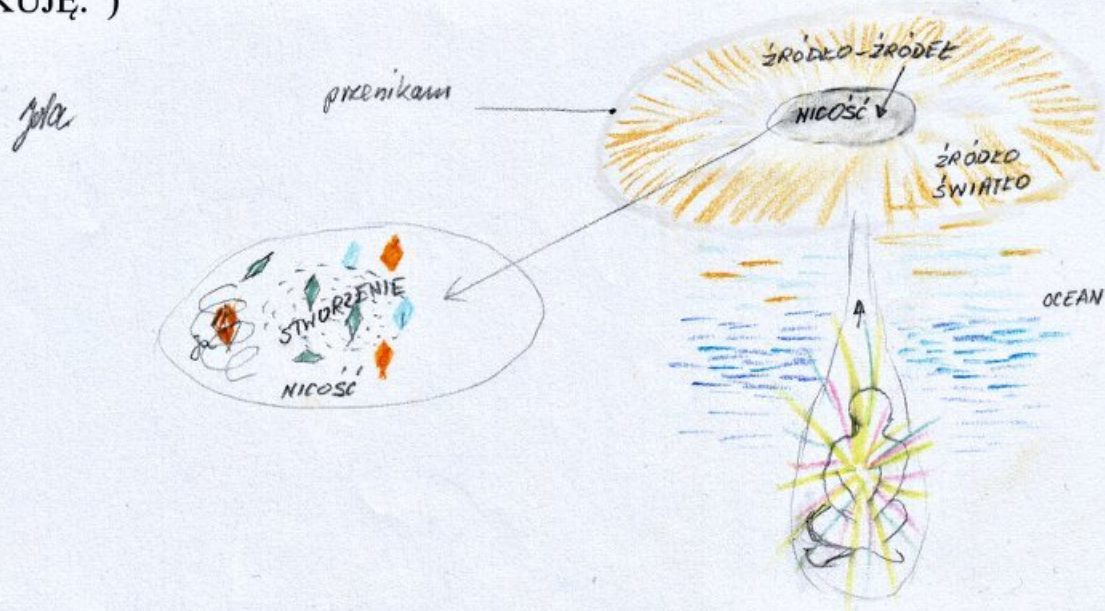 KUJĘ. )
Jola
przenikam
ŹRÓDŁO-ŹRÓDEŁ
NICOŚĆ
ŹRÓDŁO
ŚWIATŁO
OCEAN
STWORZENIE
ja
NICOŚĆ